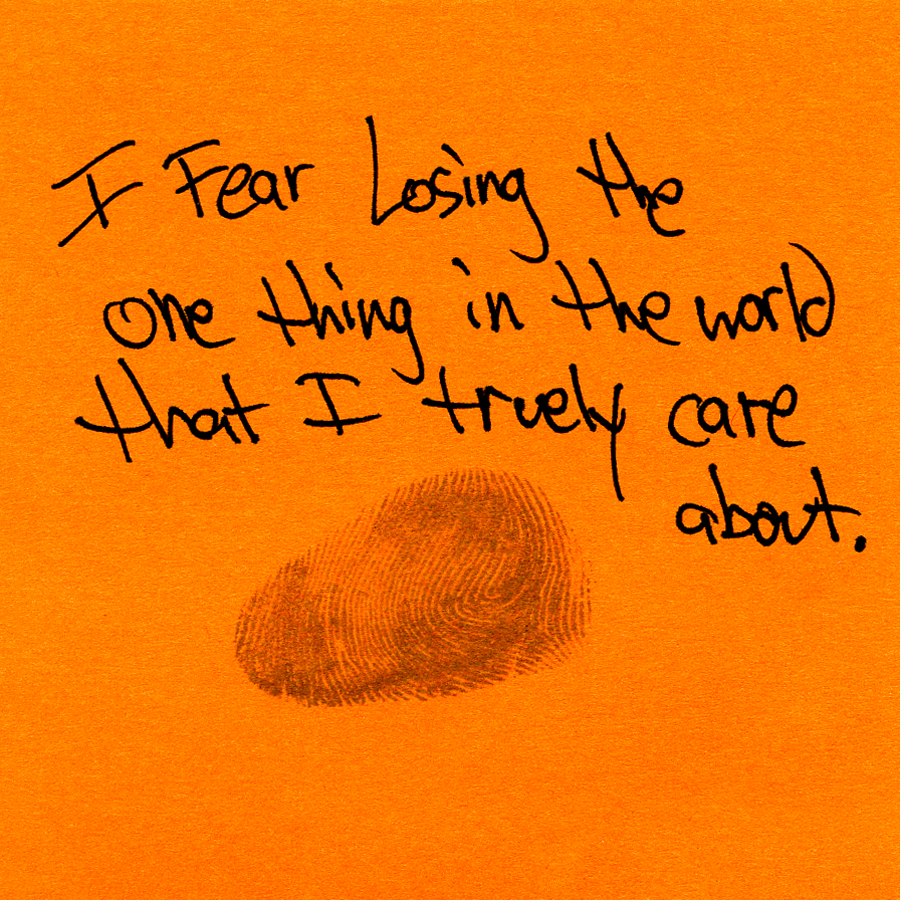 I Fear Losing the
one thing in the world
that I truely care
about.